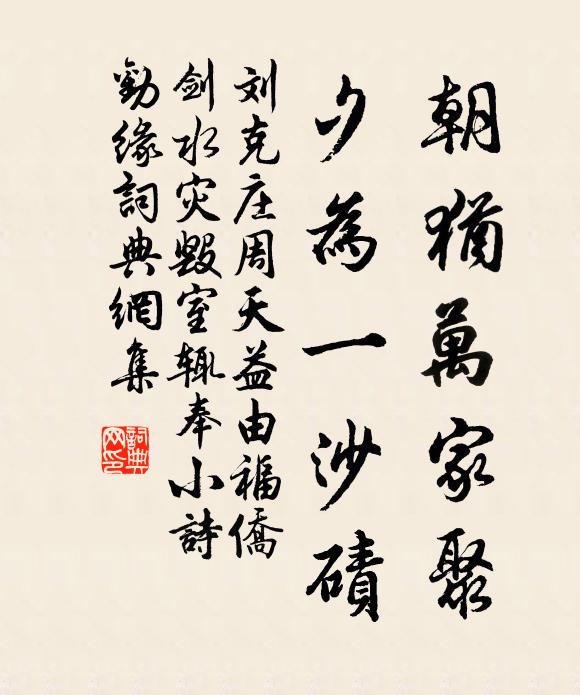 朝猶萬家聚
夕為一沙磧
刘克庄周天益由福僑
劍水灾毁室辄奉小詩
勤緣詞典網集
詞典网印